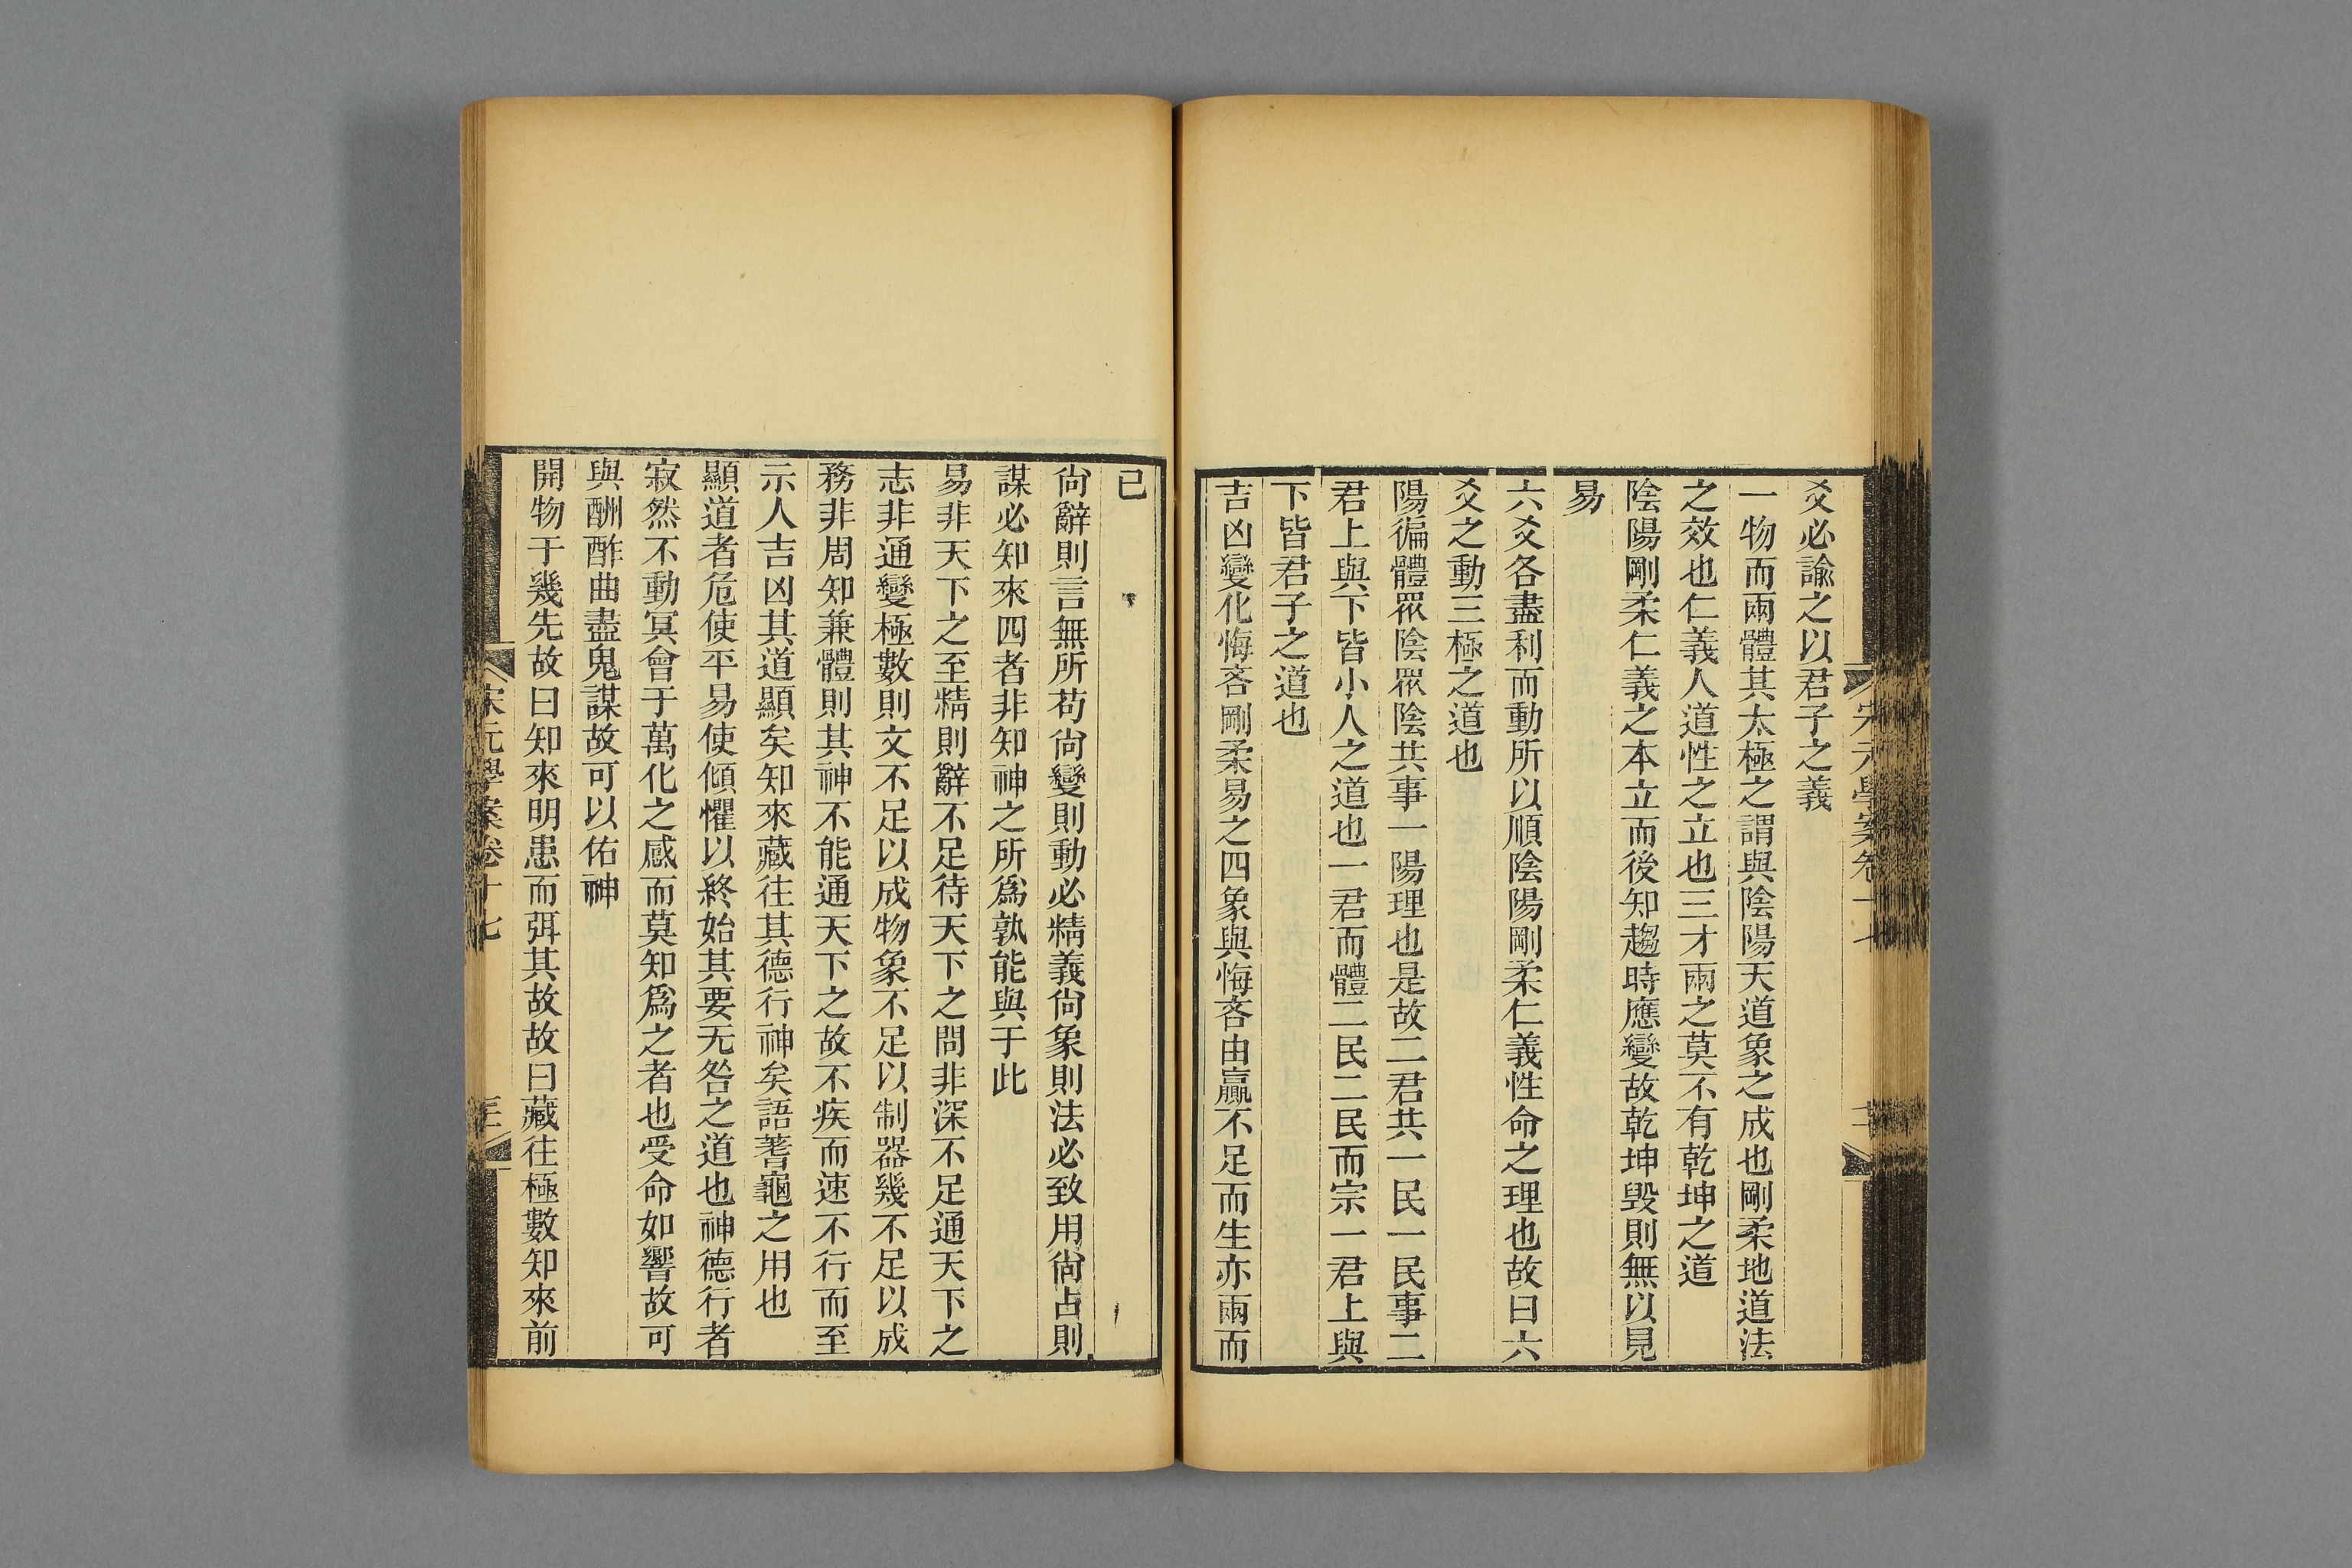 爻必諭之以君子之義
一物而兩體其太極之謂與陰陽天道象之成也剛柔地道法
之效也仁義人道性之立也三才兩之莫不有乾坤之道
陰陽剛柔仁義之本立而後知趨時應變故乾坤毀則無以見
易
六爻各盡利而動所以順陰陽剛柔仁義性命之理也故曰六
爻之動三極之道也
陽徧體眾陰眾陰共事一陽理也是故二君共一民一民事二
君上與下皆小人之道也一君而體二民二民而宗一君上與
下皆君子之道也
吉凶變化悔吝剛柔易之四象與悔吝由贏不足而生亦兩而
已
尙辭則言無所苟尙變則動必精義尙象則法必致用尙占則
謀必知來四者非知神之所爲孰能與于此
易非天下之至精則辭不足待天下之問非深不足通天下之
志非通變極數則文不足以成物象不足以制器幾不足以成
務非周知兼體則其神不能通天下之故不疾而速不行而至
示人吉凶其道顯矣知來藏往其德行神矣語蓍龜之用也
顯道者危使平易使傾懼以終始其要无咎之道也神德行者
寂然不動冥會于萬化之感而莫知爲之者也受命如響故可
與酬酢曲盡鬼謀故可以佑神
開物于幾先故曰知來明患而弭其故故曰藏往極數知來前
宋元學案卷十七